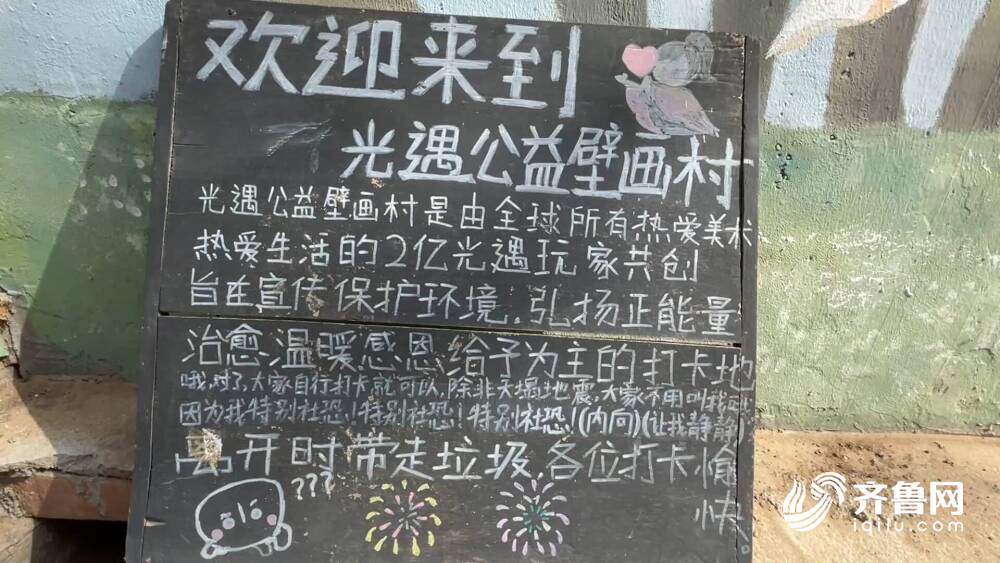 欢迎来到
光遇公益壁画村
光遇公益壁画村是由全球所有热爱美术
热爱生活的2亿光遇玩家共创
旨在宣传保护环境,弘扬正能量
治愈温暖感恩给予为主的打卡地
哦,对了,大家自行打卡就可以,除非天塌地震,大家不用叫我
因为我特别社恐!特别社恐!特别社恐!(内向)(让我静静
离开时带走垃圾,各位打卡愉
快!
???
齐鲁网
iqilu.com